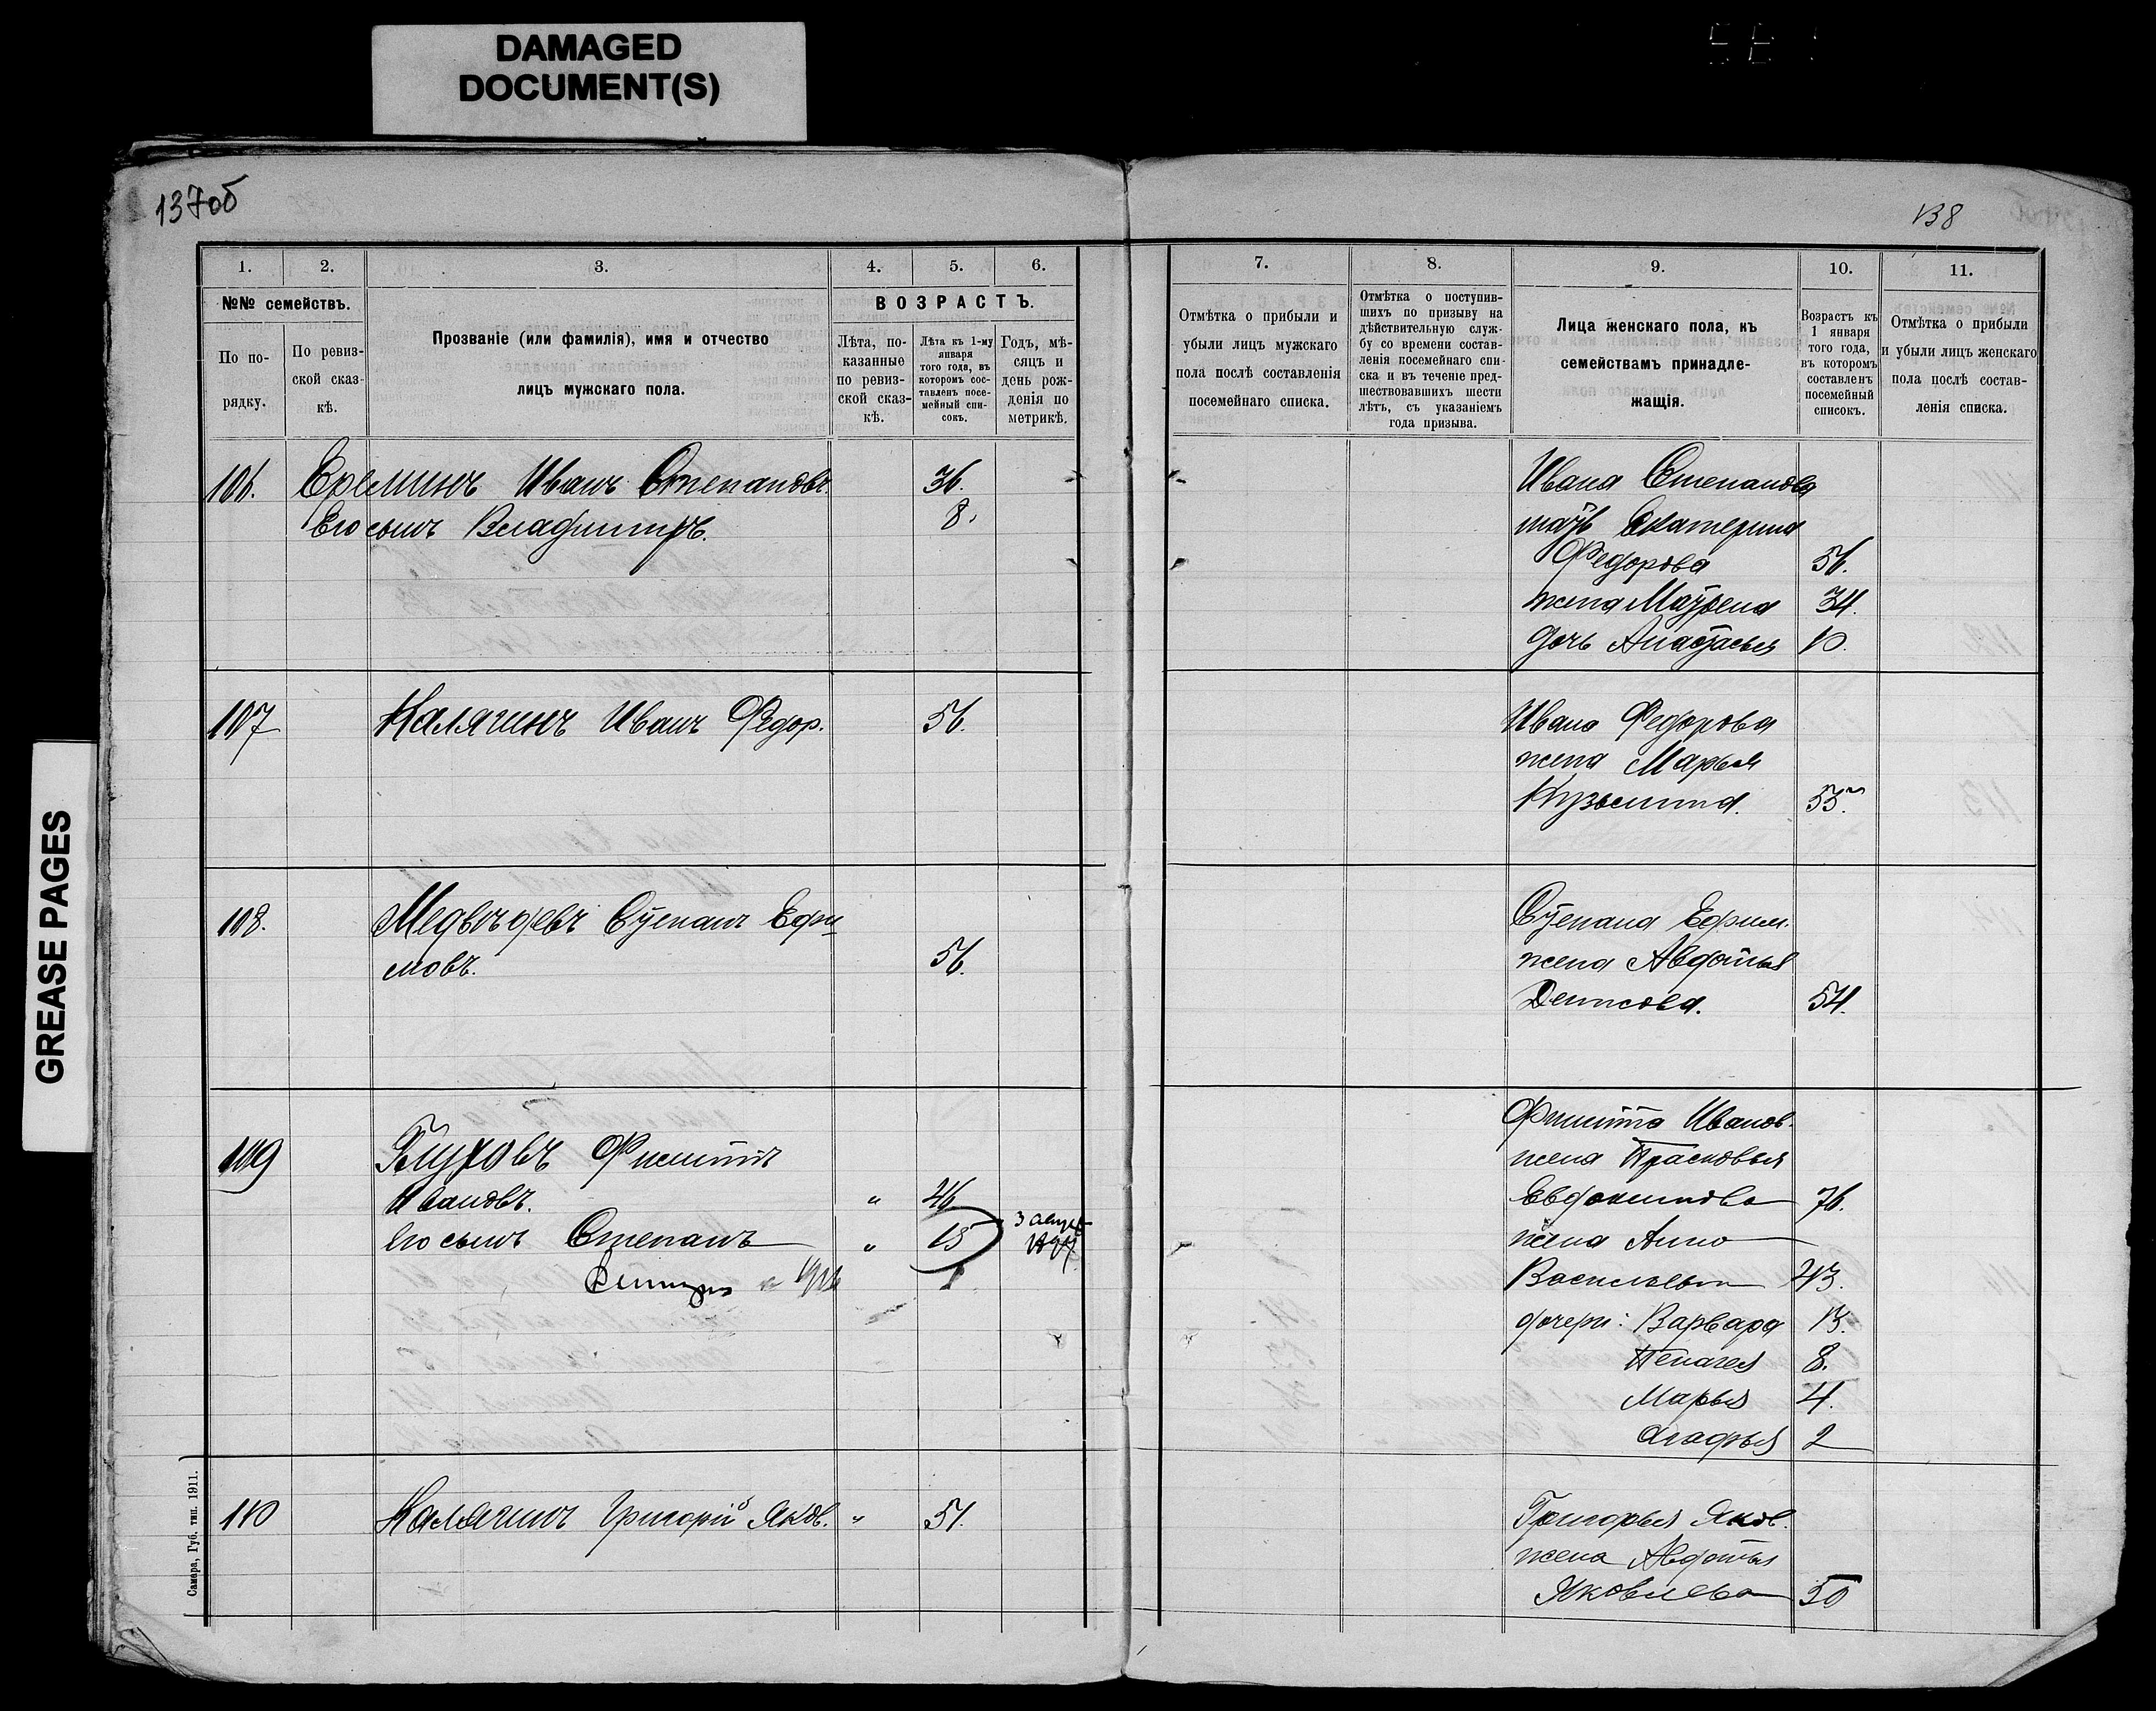 DAMAGED
DOCUMENT(S)
GREASE PAGES
137об
138
1.
2.
3.
4.
5.
6.
№№ семействъ.
По по-
рядку.
По ревиз-
ской сказ-
кѣ.
Прозваніе (или фамилія), имя и отчество
лицъ мужскаго пола.
ВОЗРАСТЪ.
Лѣта, по-
казанные
по ревиз-
ской сказ-
кѣ.
Лѣта къ 1-му
января
того года, въ
которомъ сос-
тавленъ посе-
мейный спи-
сокъ.
Годъ, мѣ-
сяцъ и
день рож-
денія по
метрикѣ.
106. Ереминъ Иванъ Степановъ. 36.
Его сынъ Владимиръ. 8.
107 Калячинъ Иванъ Федор. 56.
108. Медвѣдевъ Степанъ Ефи
мовъ. 56.
109 Глуховъ Филиппъ
Ивановъ. " 46
Его сынъ Степанъ " 15
110 Калячинъ Григорій Яков. " 51.
Самара, Губ. тип. 1911.
7.
8.
9.
10.
11.
Отмѣтка о прибыли и
убыли лицъ мужскаго
пола послѣ составленія
посемейнаго списка.
Отмѣтка о поступив-
шихъ по призыву на
дѣйствительную служ-
бу со времени состав-
ленія посемейнаго спи-
ска и въ теченіе пред-
шествовавшихъ шести
лѣтъ, съ указаніемъ
года призыва.
Лица женскаго пола, къ
семействамъ принадле-
жащія.
Возрастъ къ
1 января
того года,
въ которомъ
составленъ
посемейный
списокъ.
Отмѣтка о прибыли
и убыли лицъ женскаго
пола послѣ состав-
ленія списка.
Ивана Степанова
мать Екатерина
Федорова 56.
жена Матрена 34.
дочь Анастасья 10.
Ивана Федорова
жена Марья
Кузьмина. 55.
Степана Ефим.
жена Авдотья
Денисова. 54.
Филиппа Иванов.
жена Прасковья
Евдокимова 76.
жена Анна
Васильева 43.
дочери: Варвара 13.
Пелагея 8.
Марья 4.
Агафья 2
Григорья Яков.
жена Авдотья
Яковлева 50